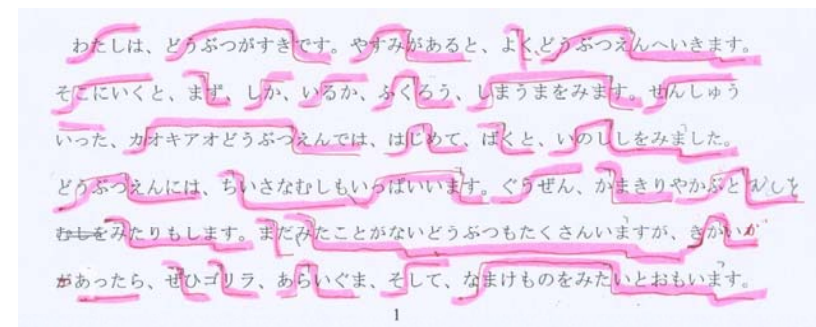 わたしは、どうぶつがすきです。やすみがあると、よくどうぶつえんへいきます。
そこにいくと、まず、しか、いるか、ふくろう、しまうまをみます。せんしゅう
いった、カオキアオどうぶつえんでは、はじめて、ばくと、いのししをみました。
どうぶつえんには、ちいさなむしもいっぱいいます。ぐうぜん、かまきりやかぶとむしを
むしをみたりもします。まだみたことがないどうぶつもたくさんいますが、きかいが
があったら、ぜひゴリラ、あらいぐま、そして、なまけものをみたいとおもいます。
1